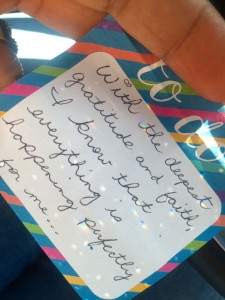 to do
With the deepest
gratitude and faith,
I know that
everything is
happening perfectly
for me...